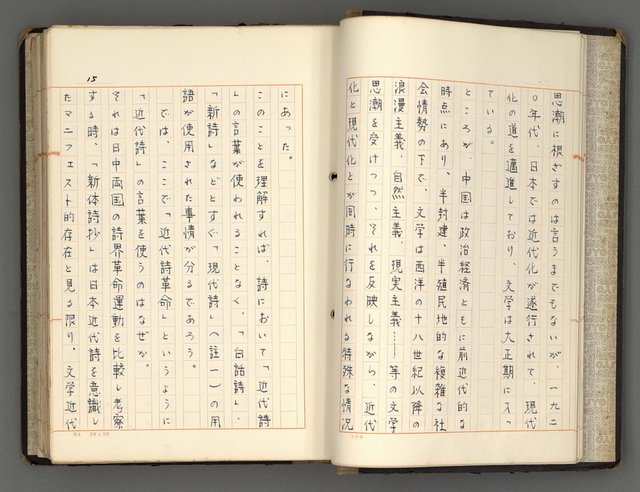 思潮に根ざすのは言うまでもないが、一九二
〇年代、日本では近代化が遂行されて、現代
化の道を邁進しており、文学は大正期に入っ
ている。
ところが、中国は政治経済ともに前近代的な
時点にあり、半封建、半殖民地的な複雑な社
会情勢の下で、文学は西洋の十八世紀以降の
浪漫主義、自然主義、現実主義……等の文学
思潮を受けつつ、それを反映しながら、近代
化と現代化とが同時に行なわれる特殊な情況
15
にあった。
このことを理解すれば、詩において「近代詩
」の言葉が使われることなく、「白話詩」、
「新詩」などとすぐ「現代詩」(註一)の用
語が使用された事情が分るであろう。
では、ここで「近代詩革命」というように
「近代詩」の言葉を使うのはなぜか。
それは日中両国の詩界革命運動を比較し考察
する時、「新体詩抄」は日本近代詩を意識し
たマニフェスト的存在と見る限り、文学近代